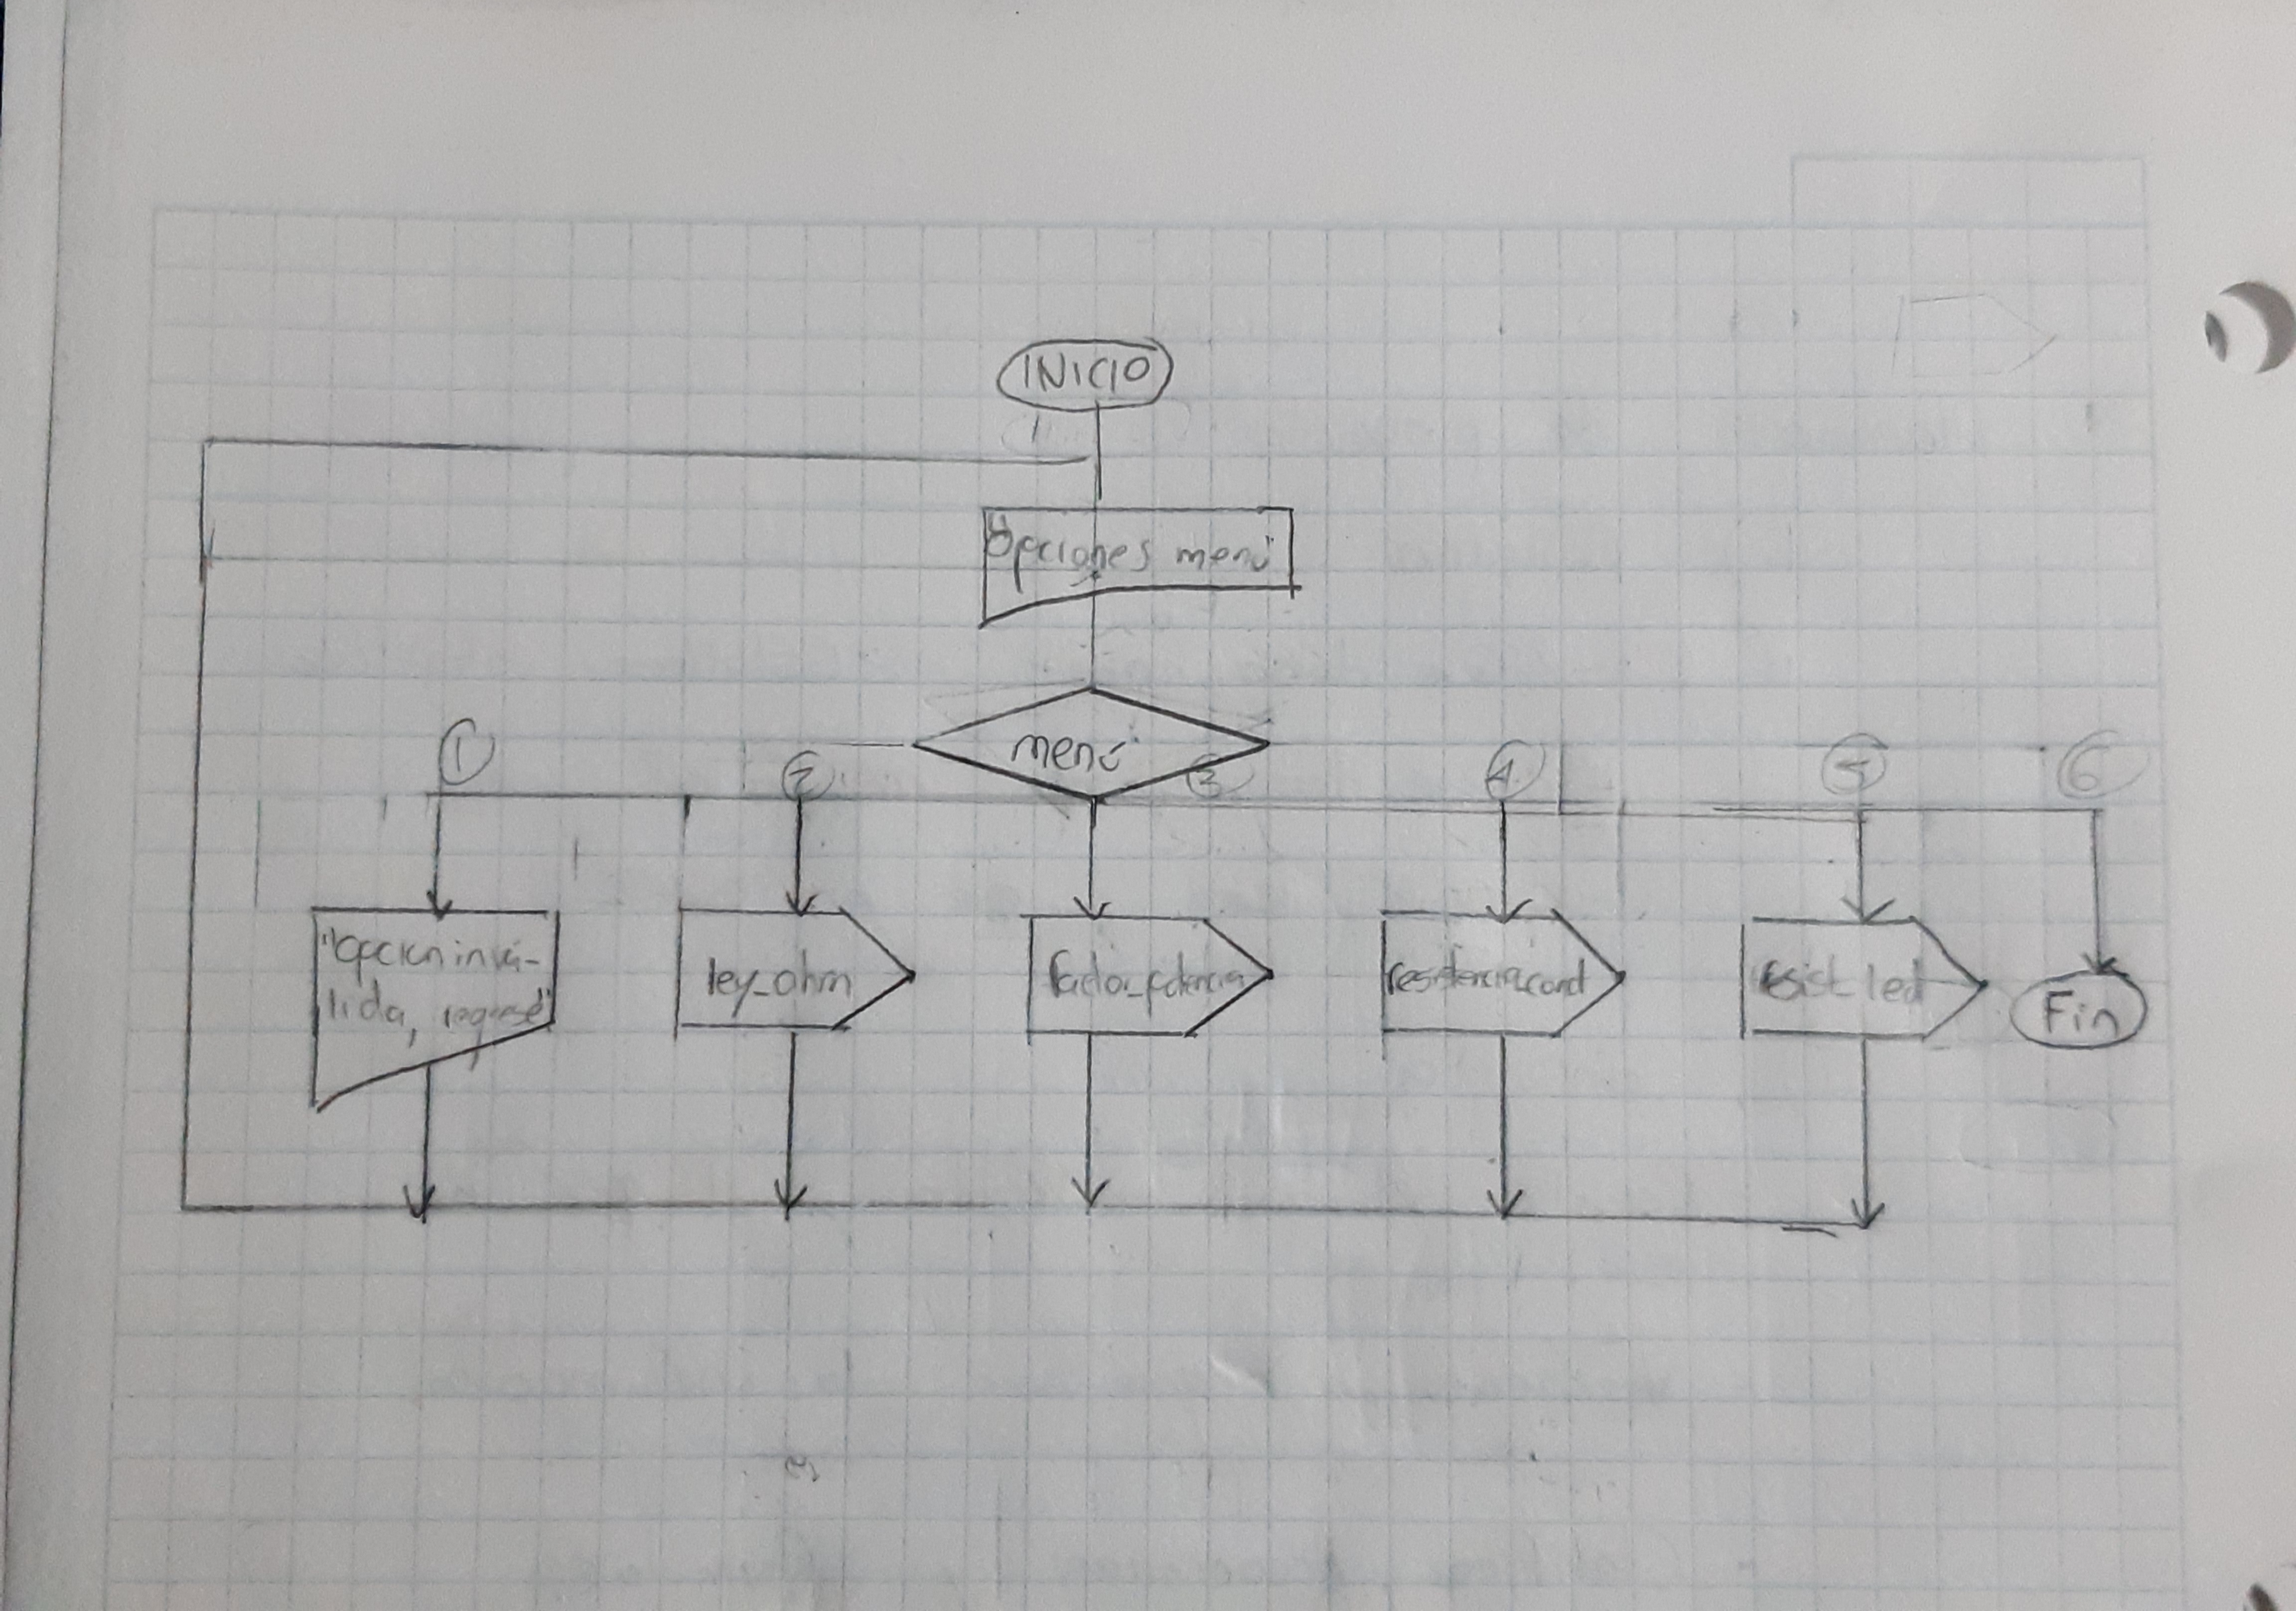 INICIO
"Opciones menú"
menú
1
2
3
4
5
6
"Opcion invá-
lida,
ley_ohm
factor_potencia
resistencia_cond
resist_led
Fin